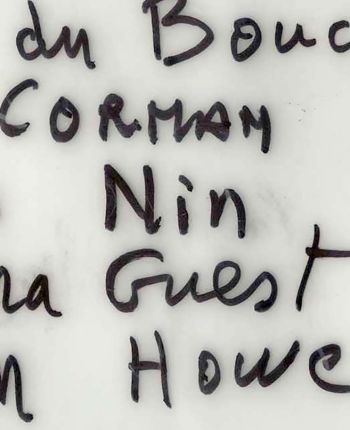 du Bouc
CORMAN
Nin
ra Guest
n Howe